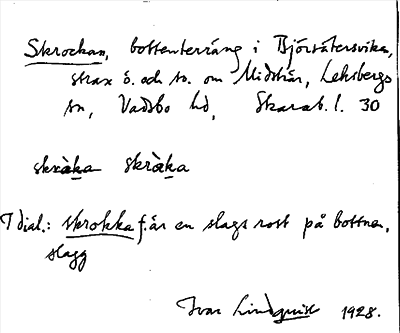 Skrockan, bottenterräng i Björsätersviken,
strax ö. och so. om Midskär, Leksbergs
sn, Vadsbo hd, Skarab. l. 30
skràka skràka
I dial.: skrokka f. är en slags rost på botten,
slagg
Ivar Lindquist 1928.